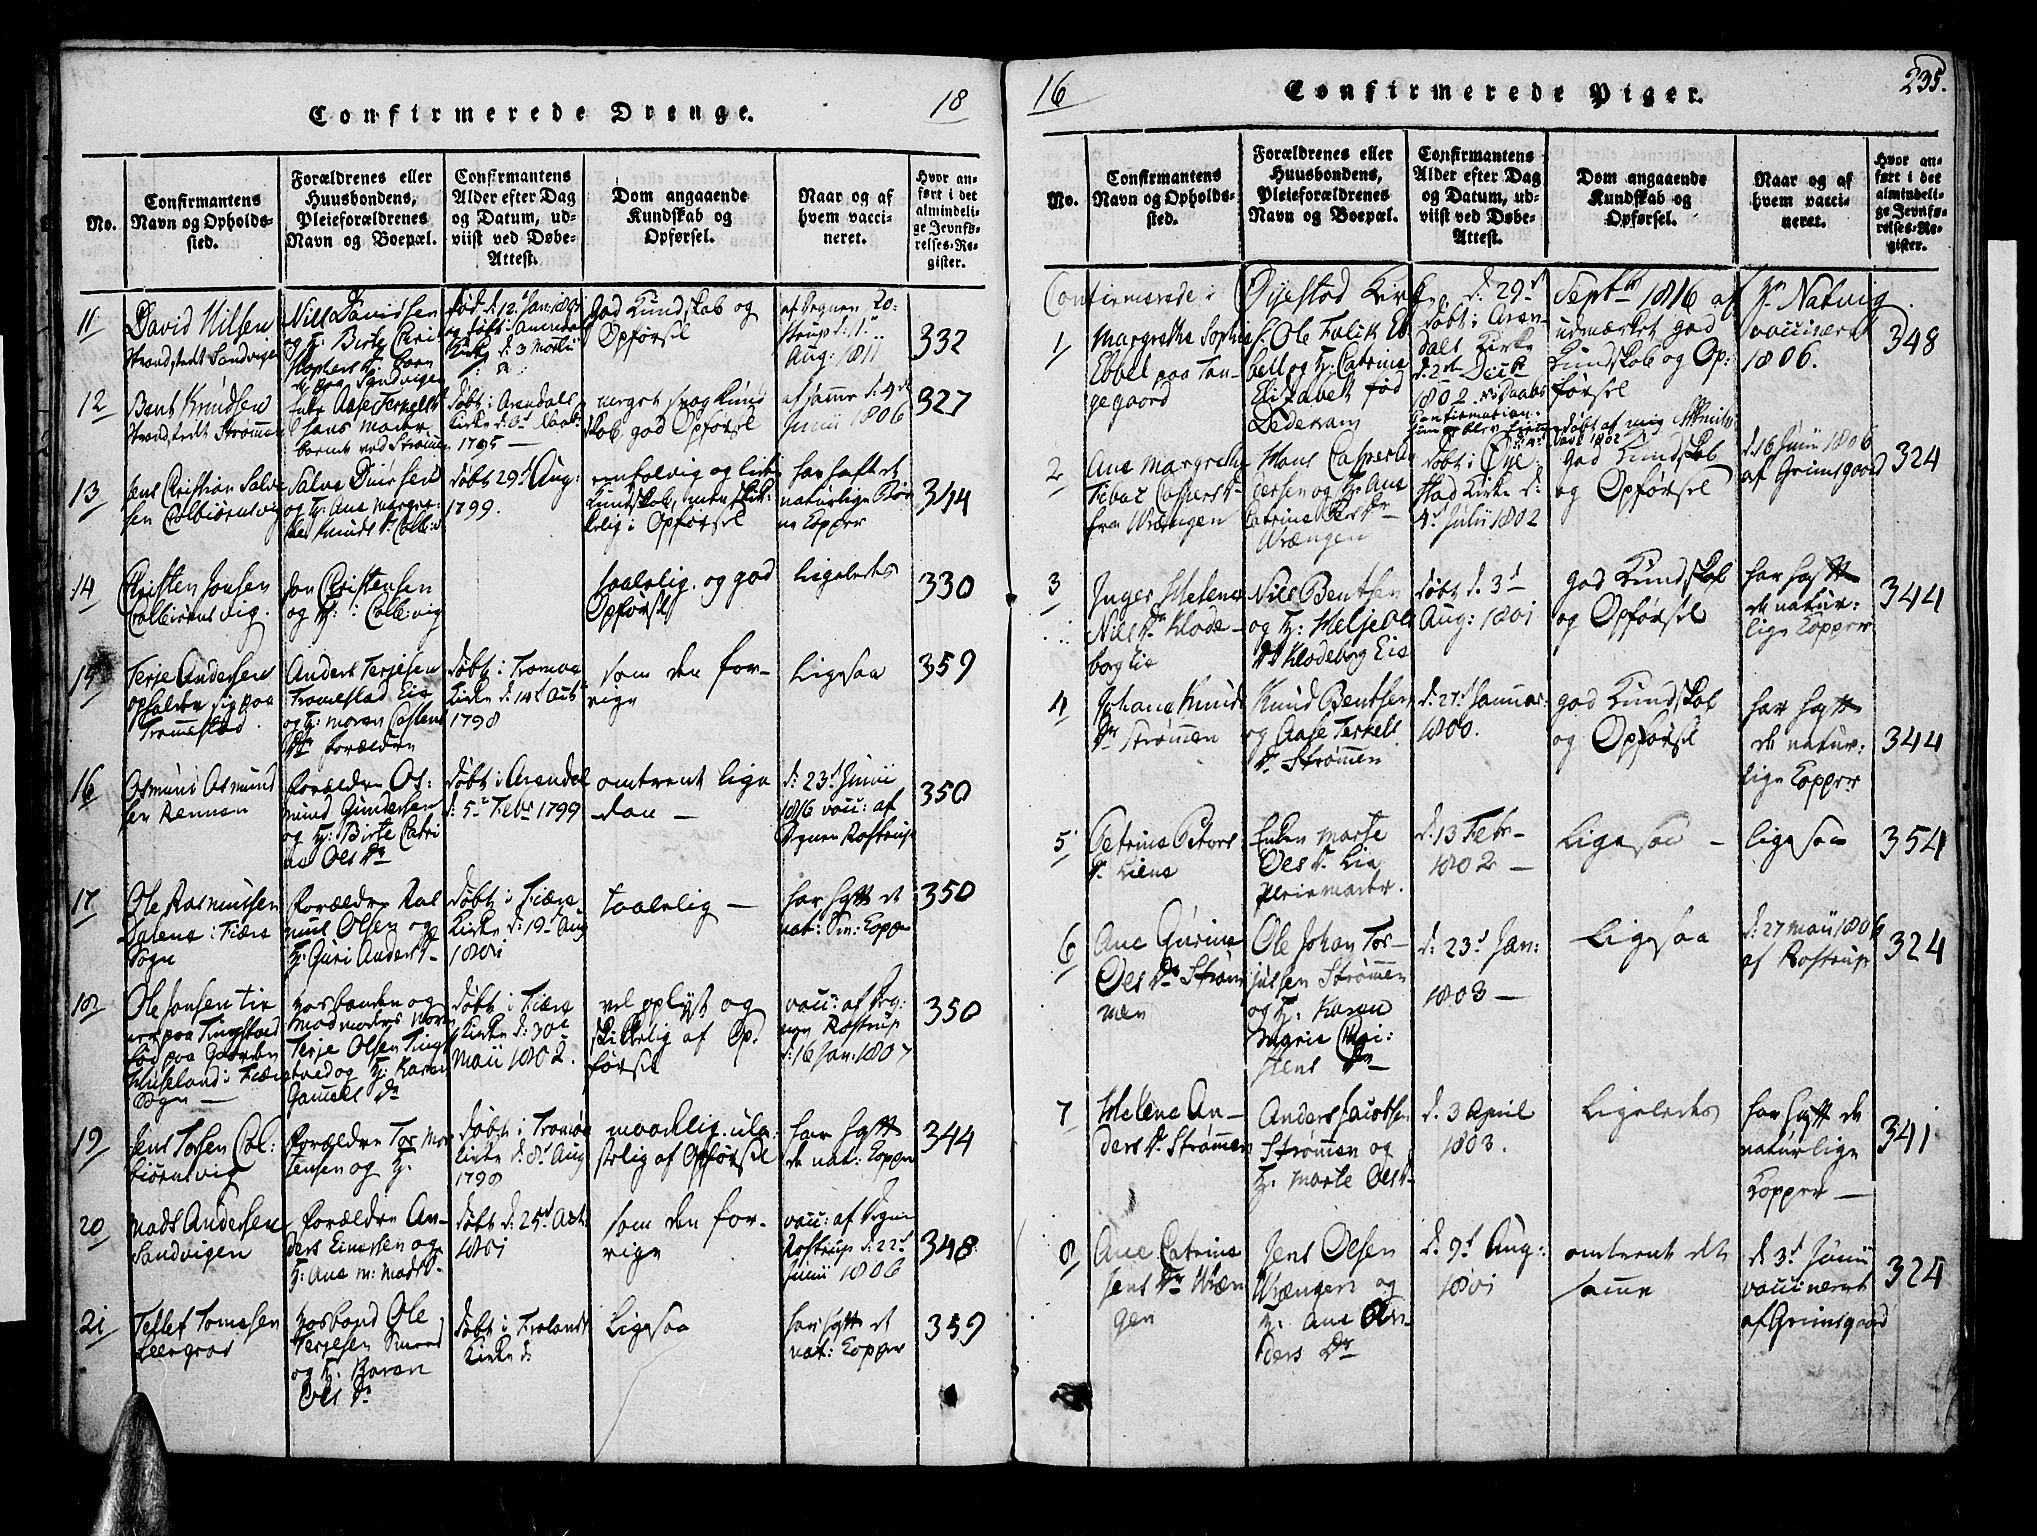 Confirmerede Drenge.
18
No.
Confirmantens
Navn og Opholds-
sted.
Forældrenes eller
Huusbondens,
Pleieforældrenes
Navn og Boepæl.
Confirmantens
Alder efter Dag
og Datum, ud-
viist ved Døbe-
Attest.
Dom angaaende
Kundskab og
Opførsel.
Naar og af
hvem vacci-
neret.
Hvor an-
ført i det
almindeli-
ge Jevnfø-
relses-Re-
gister.
11
David Nilsen
Strandstedt Sandvigen
Nils Davidsen
og H: Birte Chri
stophers
paa Sandvigen
fød d: 12t Jan: 1801
og døbt i Arendal
Kirke d: 3
god Kundskab og
Opførsel
af Degnen Ro:
strup d: 1
Aug: 1811
332
12
Bent Knudsen
Strandstedt Strømmen
Enke Aase Terkels
hans moder
boende ved Strømen
døbt i Arendals
Kirke
1795
meget svag Kund
skab god Opførsel
af samme d: 4de
Junii 1806
327
13
Jens Christian Salve
sen Colbiørnsvig
Salve
og H: Ane Margre-
the Knuds D. Colbiv
døbt 29d Aug:
1799.
eenfoldig og liden
Kundskab, men skik-
kelig i Opførsel
har haft de
naturlige Bør
ne Kopper
344
14
Christen Jonsen
Colbiørnsvig.
Jon Christensen
og H: : Colbivig
taalelig. og god
Opførsel
ligeledes
330
15
Terje Andersen
opholder sig paa
Trommestad
Anders Terjesen
Trommestad Eie
og H: Maren
Dr forældre
døbt i Tromøe
Kirke d: 14d
1798
som den for-
rige
ligesaa
359
16
Osmund Osmund
sen Rennen
forældre Os:
mund Gundersen
og H: Birte Catri
ne Oles Dr
døbt i Arendal
d: 5te Febr 1799
omtrent lige
dan —
d: 23d Junii
1816 vacc: af
Degnen Rostrup
350
17
Ole Rasmussen
Salene i Fiære
Sogn
forældre Ras
mus Olsen og
H: Guri Anders D
døbt i Fiære
Kirke d: 19de Aug
1801
taalelig —
har haft de
nat: Kopper
350
18
Ole Jonsen tie
ner paa Tingstved
fød paa Gaarden
i Fiære
Sogn —
Huusbonden og
Madmoders Navn
Terje Olsen Ting
stved og H: Karen
Gamels Dr
døbt i Fiære
Kirke d: 30te
Maii 1802.
vel oplyst og
skikkelig af Op.
førsel
vacc: af Deg:
nen Rostrup
d: 16 Jan: 1807
350
19
Jens Torsen Col:
biørnsvig
forældre Tor Mor
tensen og H:
døbt i Tromøe
Kirke d: 8d Aug
1798
maadelig. ula-
stelig af Opførsel
har haft
de nat: Kopper
344
20
Mads Andersen
Sandvigen
forældre An-
ders Einersen og
H: Ane M: Mads D.
døbt d: 25d Oct:
1801
som den for-
rige
vacc: af Degnen
Rostrup d: 22d
Junii 1806
348
21
Tellef Tomesen
Husbond Ole
Terjesen
og H: Karen
Oles Dr
døbt i Frolands
Kirke d:
Ligesaa
har haft de
nat: Kopper
359
16
Confirmerede Piger.
235.
No.
Confirmantens
Navn og Opholds-
sted.
Forældrenes eller
Huusbondens,
Pleieforældrenes
Navn og Boepæl.
Confirmantens
Alder efter Dag
og Datum, ud-
viist ved Døbe-
Attest.
Dom angaaende
Kundskab og
Opførsel.
Naar og af
hvem vacci-
neret.
Hvor an-
ført i det
almindeli-
ge Jevnfø-
relses-Re-
gister.
Confirmerede i Øiestad Kirke d: 29d Septbr 1816 af Hr Natvig.
1
Margrethe Sophie
Ebbel paa Lan-
gegaard
S. Ole Falik Eb
bell og H: Catrine
Elisabet fød
Dedekam
døbt i Aren-
dals Kirke
d: 2den Decbr
1802.
udmærket god
Kundskab og Op:
førsel
døbt af mig
vaccineret
1806.
348
2
Ane Margrethe
Tibac Caspers D.
fra Wrængen
Hans Casper
og H: Ane
Catrine Pers Dr
Wrængen
døbt i Øye
stad Kirke d:
4d Julii 1802
god Kundskab
og Opførsel
d: 16 Junii 1806
af Grimsgaard
324
3
Inger Helene
Niels Dr Klode-
borg Eie
Nils Bentsen
og H: Helje Ols
D. Klodeborg Eie
døbt d: 3d
Aug: 1801
god Kundskab
og Opførsel
har haft
de natur:
lige Kopper
344
4
Johane Knuds
Dr Strømmen
Knud Bentsen
og Aase Terkels
Dr Strømmen
d: 27d Januar
1800.
god Kundskab
og Opførsel
har haft
de natur:
lige Kopper
344
5
Petrine Peters
D. Liene
Enken Marte
Oles D. Lie
Pleiemoder.
d: 13 Febr-
1802 —
Ligesaa —
ligesaa
354
6
Ane Gurine
Oles Dr Strøm
men
Ole Johan Tor-
jussen Strømmen
og H: Karen
Marie Chri:
stens Dr
d: 23d Jan:
1803 —
Ligesaa
d: 27 Maii 1806
af Rostrup
324
7
Helene An-
ders D. Strømmen
Anders Jacobsen
Strømmen og
H: Marte Oles D.
d: 3 April
1803.
Ligeledes
har haft de
naturlige
Kopper —
341
8
Ane Catrine
Jens Dr Wræn
gen
Jens Olsen
Wrængen og
H: Ane An-
ders Dr
d: 9d Aug:
1801
omtrent det
samme
d: 3d Junii
vaccineret
af Grimsgaard
324